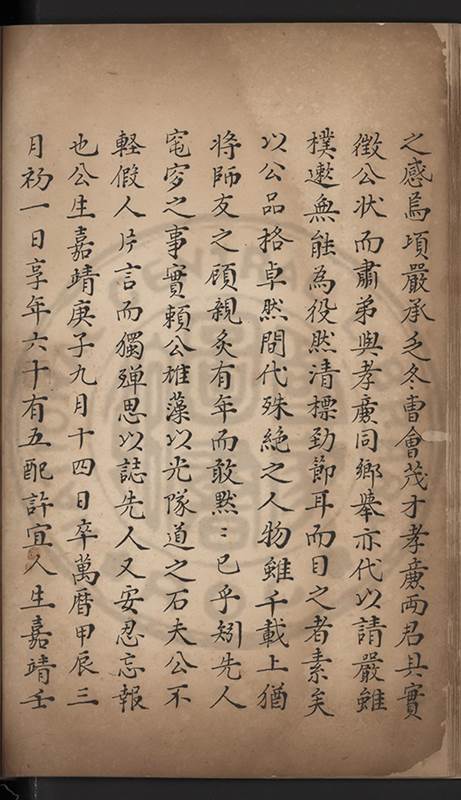 之感焉項嚴承乏冬曹會茂才孝廉両君具實
徵公状而肅弟與孝廉同鄉舉亦代以請嚴雖
樸遬無能為役然清標勁節耳而目之者素矣
以公品格卓然間代殊絶之人物雖千載上猶
将師友之顧親炙有年而敢黙〻已乎矧先人
窀穸之事實頼公雄藻以光隊道之石夫公不
軽假人片言而獨殫思以誌先人又安忍忘報
也公生嘉靖庚子九月十四日卒萬曆甲辰三
月初一日享年六十有五配許宜人生嘉靖壬